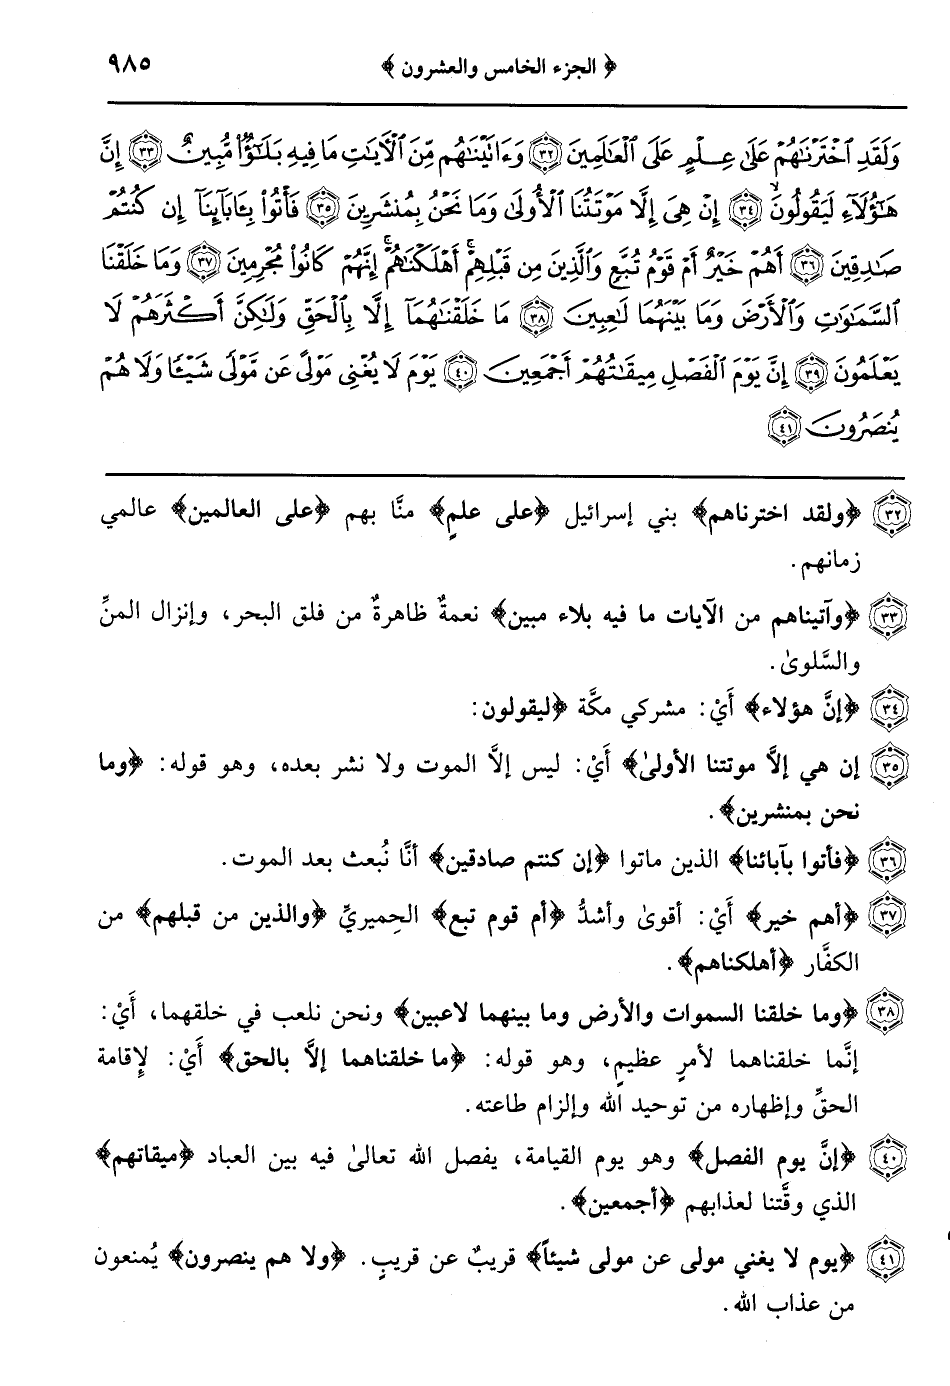 ﴿ الجزء الخامس والعشرون ﴾ ٩٨٥
وَلَقَدِ ٱخْتَرْنَٰهُمْ عَلَىٰ عِلْمٍ عَلَى ٱلْعَٰلَمِينَ ٣٢ وَءَاتَيْنَٰهُم مِّنَ ٱلْءَايَٰتِ مَا فِيهِ بَلَٰٓؤٌا۟ مُّبِينٌ ٣٣ إِنَّ
هَٰٓؤُلَآءِ لَيَقُولُونَ ٣٤ إِنْ هِىَ إِلَّا مَوْتَتُنَا ٱلْأُولَىٰ وَمَا نَحْنُ بِمُنشَرِينَ ٣٥ فَأْتُوا۟ بِـَٔابَآئِنَآ إِن كُنتُمْ
صَٰدِقِينَ ٣٦ أَهُمْ خَيْرٌ أَمْ قَوْمُ تُبَّعٍ وَٱلَّذِينَ مِن قَبْلِهِمْ ۚ أَهْلَكْنَٰهُمْ ۖ إِنَّهُمْ كَانُوا۟ مُجْرِمِينَ ٣٧ وَمَا خَلَقْنَا
ٱلسَّمَٰوَٰتِ وَٱلْأَرْضَ وَمَا بَيْنَهُمَا لَٰعِبِينَ ٣٨ مَا خَلَقْنَٰهُمَآ إِلَّا بِٱلْحَقِّ وَلَٰكِنَّ أَكْثَرَهُمْ لَا
يَعْلَمُونَ ٣٩ إِنَّ يَوْمَ ٱلْفَصْلِ مِيقَٰتُهُمْ أَجْمَعِينَ ٤٠ يَوْمَ لَا يُغْنِى مَوْلًى عَن مَّوْلًى شَيْـًٔا وَلَا هُمْ
يُنصَرُونَ ٤١
٣٢ ﴿ولقد اخترناهم﴾ بني إسرائيل ﴿على علمٍ﴾ منَّا بهم ﴿على العالمين﴾ عالمي
زمانهم.
٣٣ ﴿وآتيناهم من الآيات ما فيه بلاء مبين﴾ نعمةٌ ظاهرةٌ من فلق البحر، وإنزال المنِّ
والسَّلوىٰ.
٣٤ ﴿إنَّ هؤلاء﴾ أَيْ: مشركي مكَّة ﴿ليقولون:
٣٥ إن هي إلاَّ موتتنا الأولىٰ﴾ أَيْ: ليس إلاَّ الموت ولا نشر بعده، وهو قوله: ﴿وما
نحن بمنشرين﴾.
٣٦ ﴿فأتوا بآبائنا﴾ الذين ماتوا ﴿إن كنتم صادقين﴾ أنَّا نُبعث بعد الموت.
٣٧ ﴿أهم خير﴾ أَيْ: أقوىٰ وأشدُّ ﴿أم قوم تبع﴾ الحِميريِّ ﴿والذين من قبلهم﴾ من
الكفَّار ﴿أهلكناهم﴾.
٣٨ ﴿وما خلقنا السموات والأرض وما بينهما لاعبين﴾ ونحن نلعب في خلقهما، أَيْ:
إنَّما خلقناهما لأمرٍ عظيمٍ، وهو قوله: ﴿ما خلقناهما إلاَّ بالحق﴾ أَيْ: لإِقامة
الحقِّ وإظهاره من توحيد الله وإلزام طاعته.
٤٠ ﴿إنَّ يوم الفصل﴾ وهو يوم القيامة، يفصل الله تعالىٰ فيه بين العباد ﴿ميقاتهم﴾
الذي وقَّتنا لعذابهم ﴿أجمعين﴾.
٤١ ﴿يوم لا يغني مولى عن مولى شيئاً﴾ قريبٌ عن قريبٍ. ﴿ولا هم ينصرون﴾ يُمنعون
من عذاب الله.